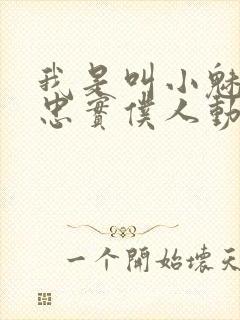 我是叫小魅
忠實僕人動
一个開始壞天